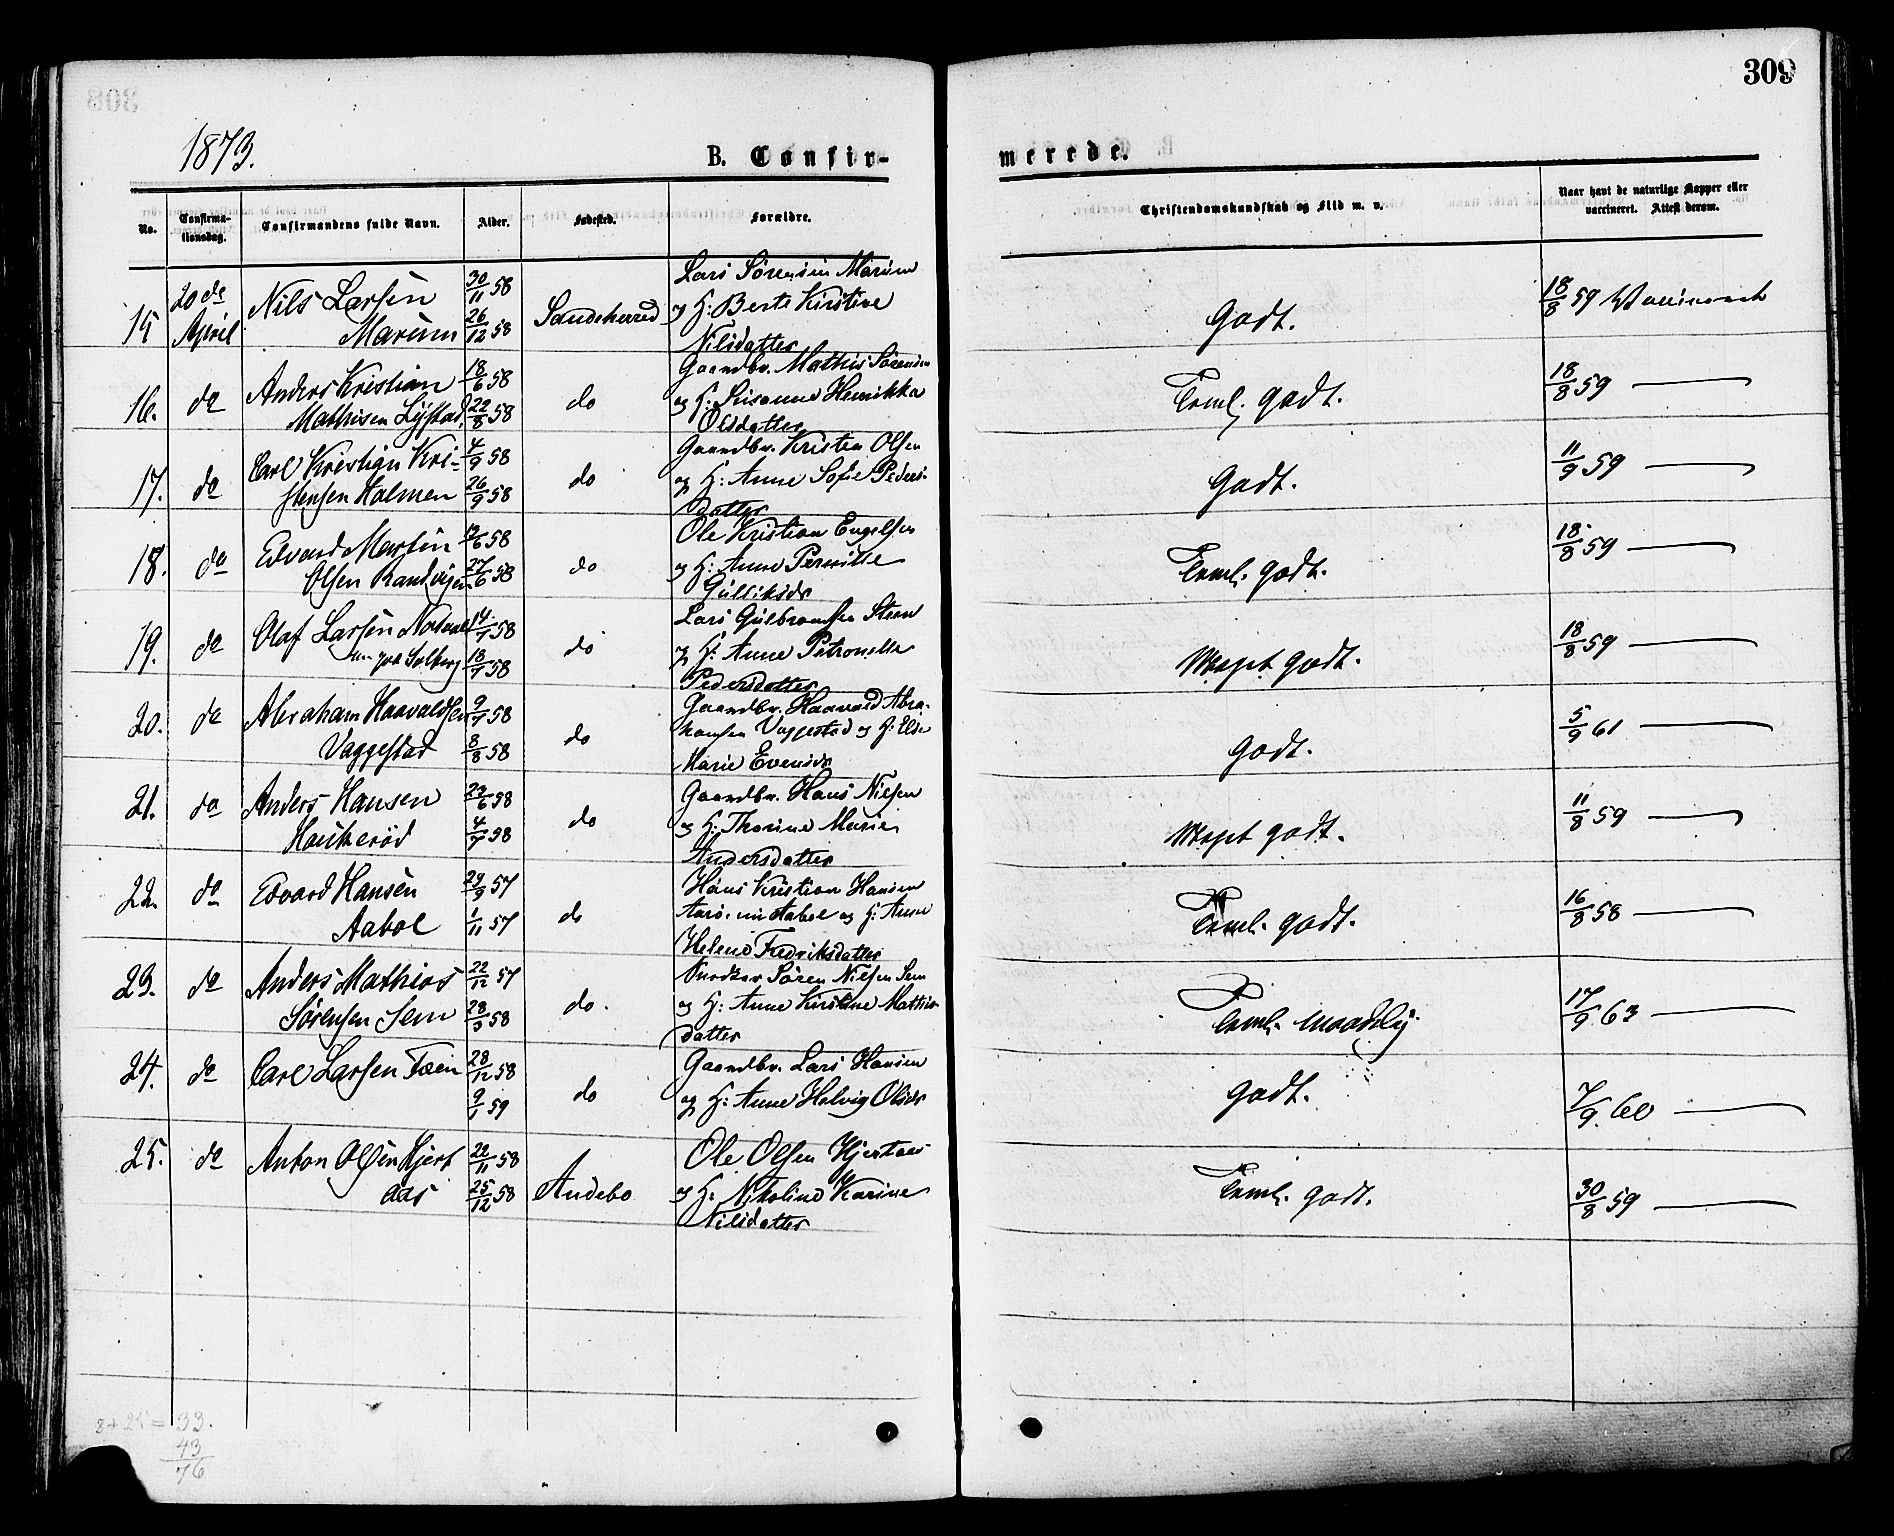 309
1873.
B. Confir-
merede.
No.
Confirma-
tionsdag.
Confirmandens fulde Navn.
Alder.
Fødested.
Forældre.
Christendomskundskab og Flid m. v.
Naar havt de naturlige Kopper eller
vaccineret. Attest derom.
15 20de April Nils Larsen Marum 30/11 58 26/12 58 Sandeherred Lars Sørensen Marum
og H: Berte Kirstine
Nilsdatter
Godt. 18/8 59
16. do Anders Kristian Mathisen Lystad 18/6 58 22/8 58 do Gaardbr. Mathis Sørensen
og H: Susanne Henrikka
Olsdatter
Teml. godt. 18/8 59
17. do Carl Kristian Kri-
stensen Holmen 4/9 58 26/9 58 do Gaardbr. Kristen Olsen
og H: Anne Sofie Peders-
datter
Godt. 11/9 59
18. do Edvard Martin Olsen Ranvigen 27/6 58 do Ole Kristian Engelsen
og H: Anne Pernille
Gulliksdr
Teml. godt. 18/8 59
19. do Olaf Larsen 14/7 58 18/7 58 do Lars Gulbransen Steen
og H: Anne Petronelle
Pedersdatter
Meget godt. 18/8 59
20. do Abraham Haavaldsen Vaggestad 9/7 58 8/8 58 do Gaardbr. Haavald Abra-
hamsen Vaggestad og H: Else
Marie Evensdr
Godt. 5/9 61
21. do Anders Hansen Haukerød 23/6 58 4/7 58 do Gaardbr. Hans Nilsen
og H: Thorine Marie
Andersdatter
Meget godt. 11/8 59
22. do Edvard Hansen Aabol 29/9 57 1/11 57 do Hans Kristian Hansen
Aabol og H: Anne
Helene Fredriksdatter
Teml. godt. 16/8 58
23. do Anders Mathias Sørensen Sem 22/12 57 28/3 58 do. Søren Nilsen Sem
og H: Anne Kirstine Mathis-
datter
Teml. maadelig. 17/9 63
24. do Carl Larsen Fæen 28/12 58 9/1 59 do Gaardbr. Lars Hansen
og H: Anne Helvig Olsdr
godt. 7/9 60
25. do Anton Olsen Hjert
aas 22/11 58 25/12 58 Andebo Ole Olsen Hjertaas
og H: Nikoline Karine
Nilsdatter
Teml. godt. 30/8 59
8+25=33.
43
76